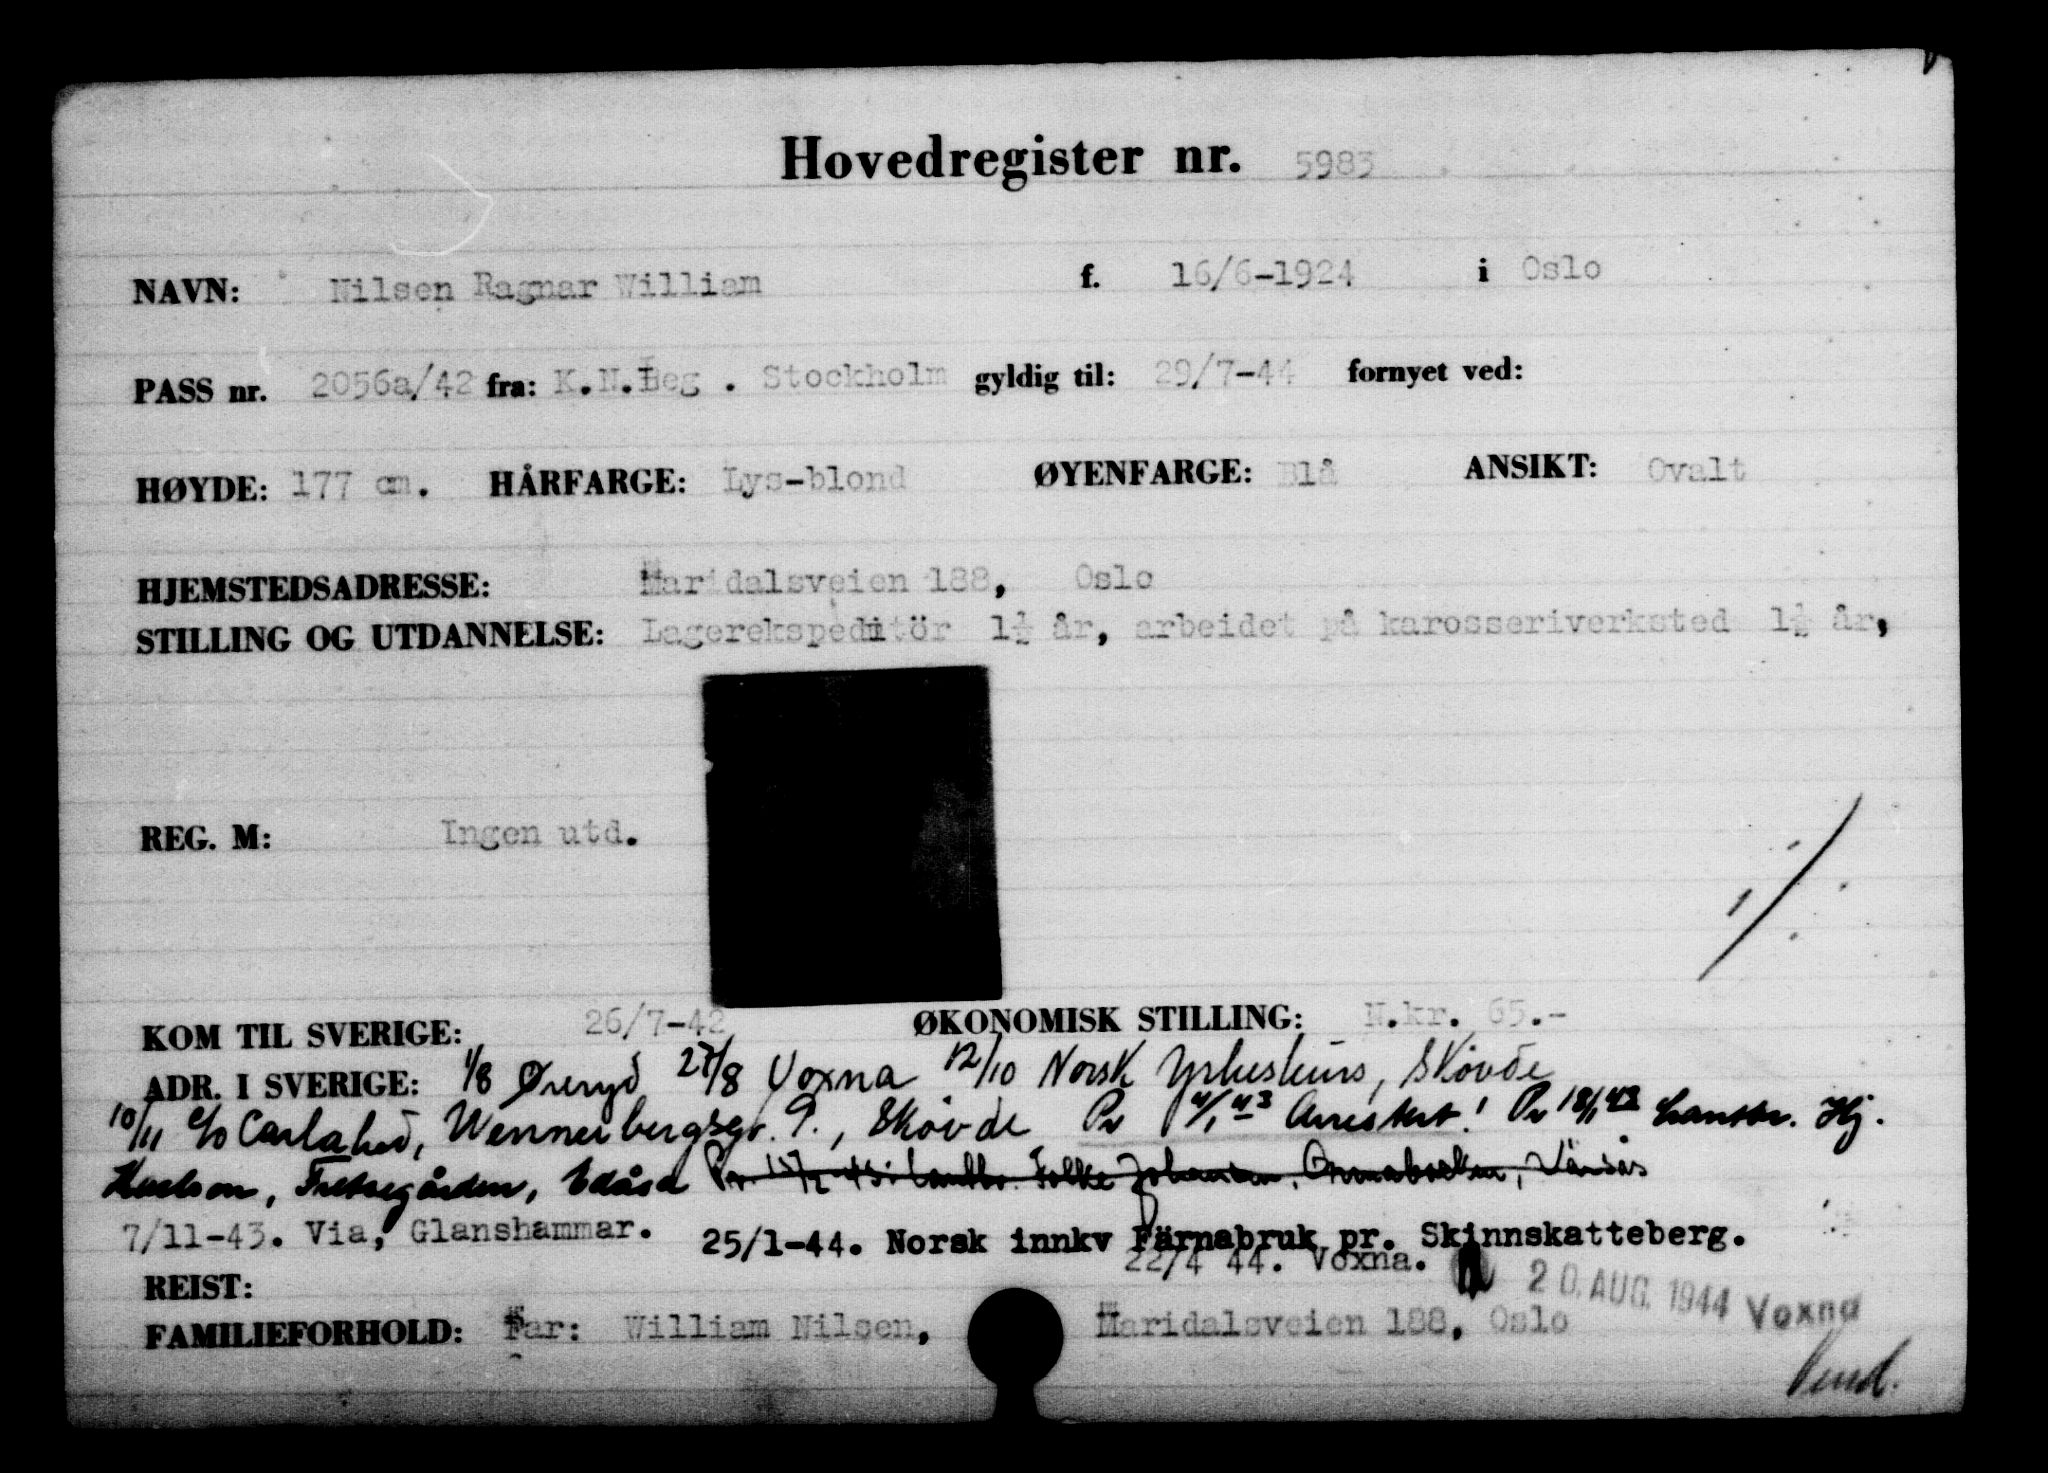 Hovedregister nr. 5983
NAVN: Nilsen Ragnar William f. 16/6-1924 i Oslo
PASS nr. 2056a/42 fra: K.N.Leg. Stockholm gyldig til: 29/7-44 fornyet ved:
HØYDE: 177 cm. HÅRFARGE: Lys-blond ØYENFARGE: Blå ANSIKT: Ovalt
HJEMSTEDSADRESSE: Maridalsveien 188, Oslo
STILLING OG UTDANNELSE: Lagerekspeditör 1½ år, arbeidet på karosseriverksted 1½ år,
REG. M: Ingen utd.
KOM TIL SVERIGE: 26/7-42 ØKONOMISK STILLING: N.kr. 65.-
ADR. I SVERIGE: 1/8 Øreryd 27/8 Voxna 12/10 Norsk Yrkeskurs, Skövde
10/11 c/o Carlahed, Wennerbergsgt. 9., Skövde Pr 4/1 43 Arrestert! Pr 18/1 43 Lantbr. Hj.
Karlson, Fretsegården, Edåsa Pr. 43: Lantbr. Folke Johanson, Värsås
7/11-43. Via, Glanshammar. 25/1-44. Norsk innkv Färnabruk pr. Skinnskatteberg.
22/4 44. Voxna. 20. AUG. 1944 Voxna
REIST:
FAMILIEFORHOLD: Far: William Nilsen, Maridalsveien 188, Oslo
Vend.